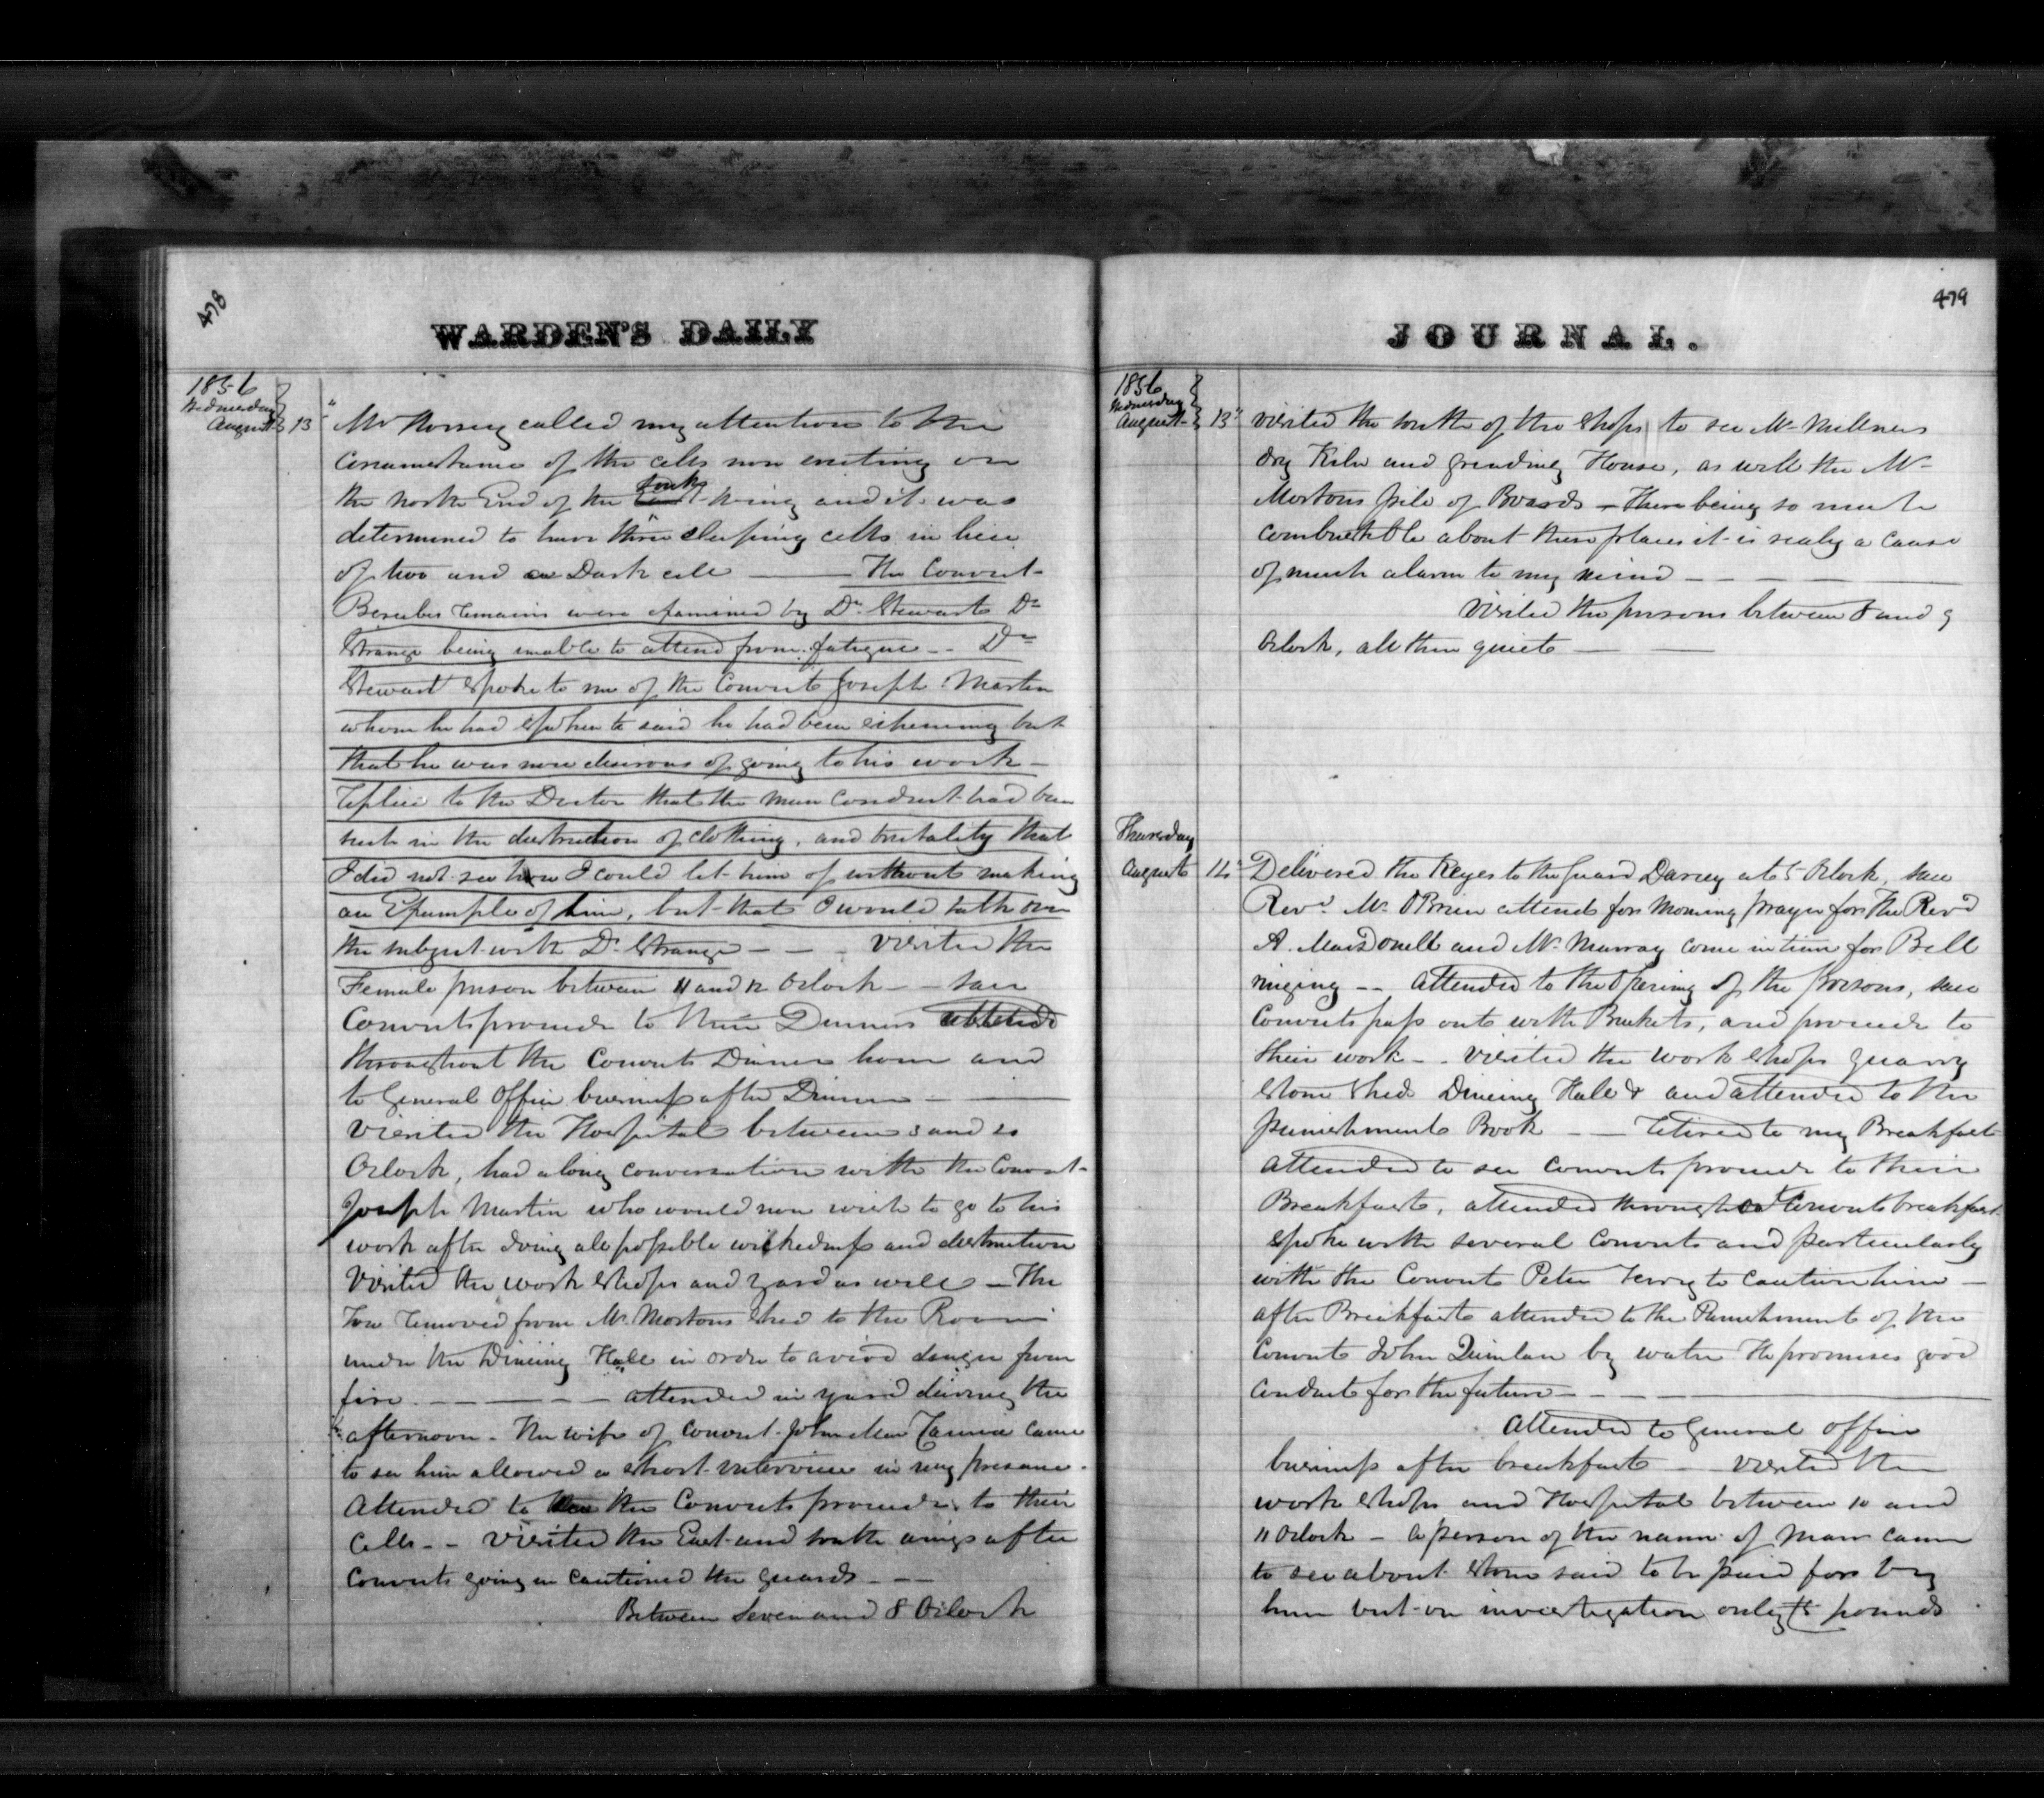 478
WARDEN'S DAILY
1856
Wednesday
August 13
Mr Horsey called my attention to the
circumstance of the cells now existing on
the North End of the South Wing and it was
determined to have three sleeping cells in lieu
of two and a Dark cell — The Convict
remains were examined by Dr Stewart Dr
Strange being unable to attend from fatigue -- Dr
Stewart spoke to me of the Convict Joseph Martin
whom he had spoken to said he had been scheming but
that he was now desirous of going to his work -
replied to the Doctor that the mans conduct had been
such in the destruction of clothing, and brutality that
I did not see how I could let him of without making
an Example of him, but that I would talk over
the subject with Dr Strange - - visited the
Female prison between 11 and 12 Oclock - - saw
Convicts proceed to their Dinners attended
throughout the Convicts Dinner hour and
to General Office business after Dinner —
Visited the Hospital between 3 and
Oclock, had a long conversation with the Convict
Joseph Martin who would now wish to go to his
work after doing all possible wickedness and destruction
Visited the work shops and yard as well — The
Tow removed from Mr Mortons shed to the Room
under the Dineing Hall in order to avoid danger from
fire - - - - - attended in yard during the
afternoon. The wife of Convict John came
to see him allowed a short interview in my presence.
Attended to the Convicts proceed to their
Cells - - Visited the East and South wings after
Convicts going in cautioned the guards - —
Between Seven and 8 Oclock
JOURNAL.
479
1856
Wednesday
August 13
visited the South of the Shops to see Mr Millners
dry Kiln and grinding House, as well the Mr
Mortons pile of Boards - There being so much
combustible about these places it is realy a cause
of much alarm to my mind - - - —
Visited the prisons between 8 and 9
Oclock, all then quiet — —
Thursday
August 14
Delivered the Keyes to the guard at 5 Oclock, saw
Revd Mr OBrien attend for Morning prayer for the Revd
A. MacDonell and Mr Murray come in time for Bell
ringing - - attended to the Opening of the prisons, saw
Convicts pass out with Buckets, and proceed to
their work - . visited the work shops quarry
stone Shed Dineing Hall & and attended to the
punishment Book — retired to my Breakfast
attended to see Convicts proceed to their
Breakfast, attended throughout Convicts breakfast
spoke with several Convicts and particularly
with the Convict Peter to caution him —
after Breakfast attended to the Punishment of the
Convict John Quinlan by water He promises good
Conduct for the future - - - —
Attended to General Office
business after breakfast — visited the
work shops and Hospital between 10 and
11 Oclock - a person of the name of came
to see about stone said to be paid for by
him but on investigation only 5 pounds